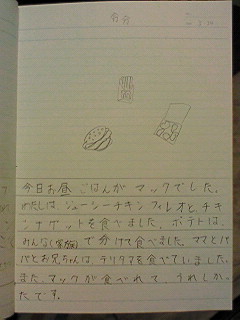 今日お昼ごはんがマックでした。
わたしはジューシーチキンフィレオとチキ
ンナゲットを食べました。ポテトは、
みんな(家族)で分けて食べました。ママとパ
パとお兄ちゃんは、テリタマを食べていました。
また、マックが食べれて、うれしか
たです。